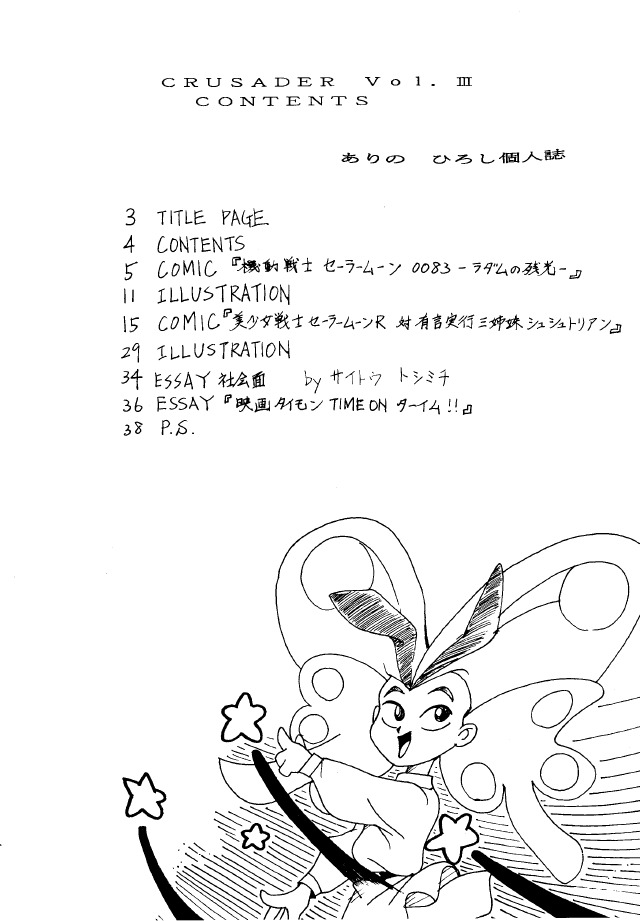 CRUSADER Vol.Ⅲ
CONTENTS
ありの ひろし個人誌
3 TITLE PAGE
4 CONTENTS
5 COMIC『機動戦士セーラームーン 0083-ラダムの残光-』
11 ILLUSTRATION
15 COMIC『美少女戦士セーラームーンR 対有言実行三姉妹シュシュトリアン』
29 ILLUSTRATION
34 ESSAY 社会面 by サイトウ トシミチ
36 ESSAY『映画ダイモン TIME ON ターイム!!』
38 P.S.